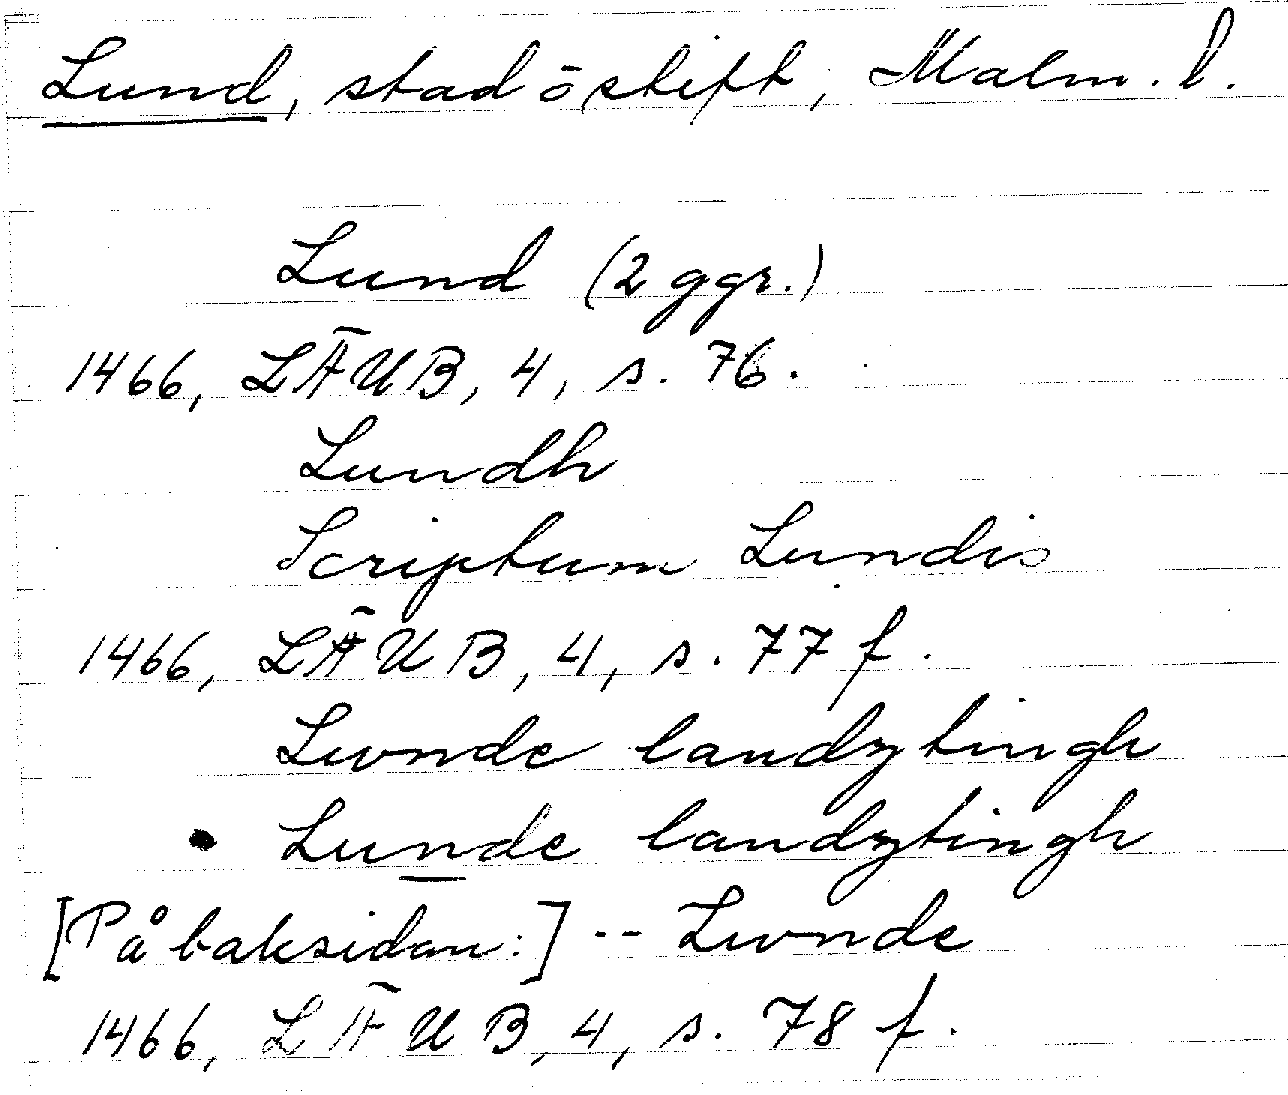 Lund, stad ö stift, Malm. l.
Lund (2 ggr.)
1466, LÄUB, 4, s. 76.
Lundh
Scriptum Lundis
1466, LÄUB, 4, s. 77 f.
Lvnde landztingh
Lunde landztingh
[På baksidan:] -- Lvnde
1466, LÄUB, 4, s. 78 f.